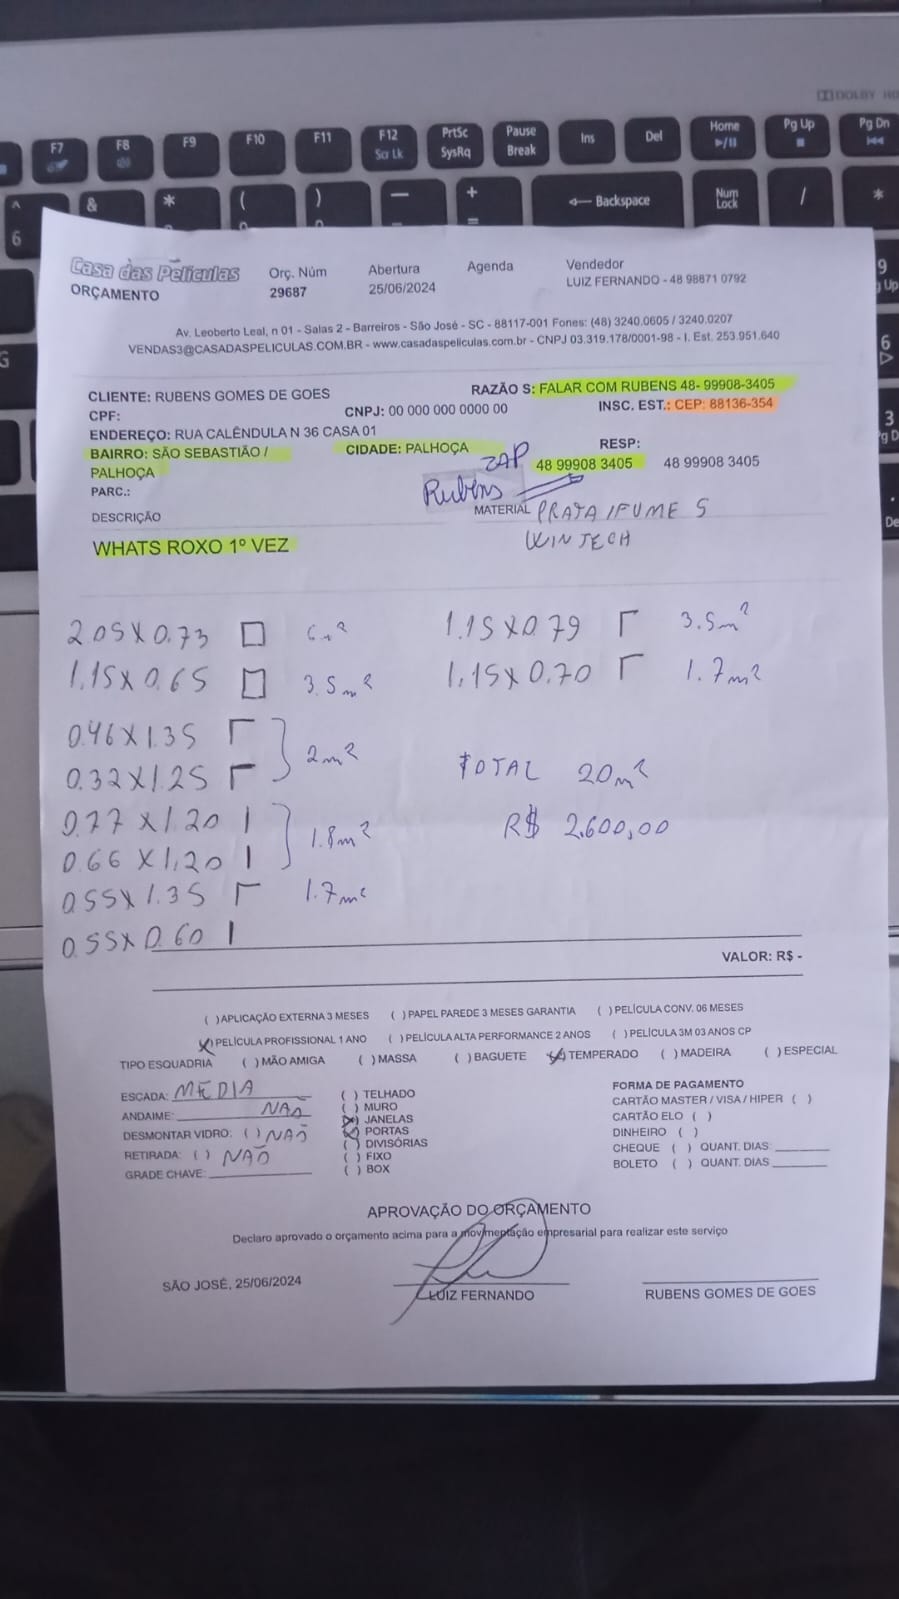 DOLBY
F7 F8 F9 F10 F11 F12 PrtSc Pause Ins Del Home Pg Up Pg Dn
Scr Lk SysRq Break
& * ( ) — + ← Backspace Num / *
6 = Lock
Casa das Películas Orç. Núm Abertura Agenda Vendedor
ORÇAMENTO 29687 25/06/2024 LUIZ FERNANDO - 48 98871 0792
Av. Leoberto Leal, n 01 - Salas 2 - Barreiros - São José - SC - 88117-001 Fones: (48) 3240.0605 / 3240.0207
VENDAS3@CASADASPELICULAS.COM.BR - www.casadaspeliculas.com.br - CNPJ 03.319.178/0001-98 - I. Est. 253.951.640
CLIENTE: RUBENS GOMES DE GOES RAZÃO S: FALAR COM RUBENS 48- 99908-3405
CPF: CNPJ: 00 000 000 0000 00 INSC. EST.: CEP: 88136-354
ENDEREÇO: RUA CALÊNDULA N 36 CASA 01
BAIRRO: SÃO SEBASTIÃO / CIDADE: PALHOÇA RESP:
PALHOÇA ZAP 48 99908 3405 48 99908 3405
PARC.: Rubens
DESCRIÇÃO MATERIAL PRATA/FUME S
WHATS ROXO 1º VEZ WINTECH
2.05X0.73 6m² 1.15X0.79 3.5m²
1.15X0.65 3.5m² 1,15X0.70 1.7m²
0.46X1.35
0.32X1.25 2m² TOTAL 20m²
0.77X1.20
0.66X1,20 1.8m² R$ 2.600,00
0.55X1.35 1.7m²
0.55X0.60
VALOR: R$ -
( ) APLICAÇÃO EXTERNA 3 MESES ( ) PAPEL PAREDE 3 MESES GARANTIA ( ) PELÍCULA CONV. 06 MESES
(X) PELÍCULA PROFISSIONAL 1 ANO ( ) PELÍCULA ALTA PERFORMANCE 2 ANOS ( ) PELÍCULA 3M 03 ANOS CP
TIPO ESQUADRIA ( ) MÃO AMIGA ( ) MASSA ( ) BAGUETE (X) TEMPERADO ( ) MADEIRA ( ) ESPECIAL
ESCADA: MEDIA ( ) TELHADO FORMA DE PAGAMENTO
ANDAIME: NAÕ ( ) MURO CARTÃO MASTER / VISA / HIPER ( )
(X) JANELAS CARTÃO ELO ( )
DESMONTAR VIDRO: ( ) NAÕ (X) PORTAS DINHEIRO ( )
RETIRADA: ( ) NAÕ ( ) DIVISÓRIAS CHEQUE ( ) QUANT. DIAS
GRADE CHAVE: ( ) FIXO BOLETO ( ) QUANT. DIAS
( ) BOX
APROVAÇÃO DO ORÇAMENTO
Declaro aprovado o orçamento acima para a movimentação empresarial para realizar este serviço
SÃO JOSÉ, 25/06/2024 LUIZ FERNANDO RUBENS GOMES DE GOES